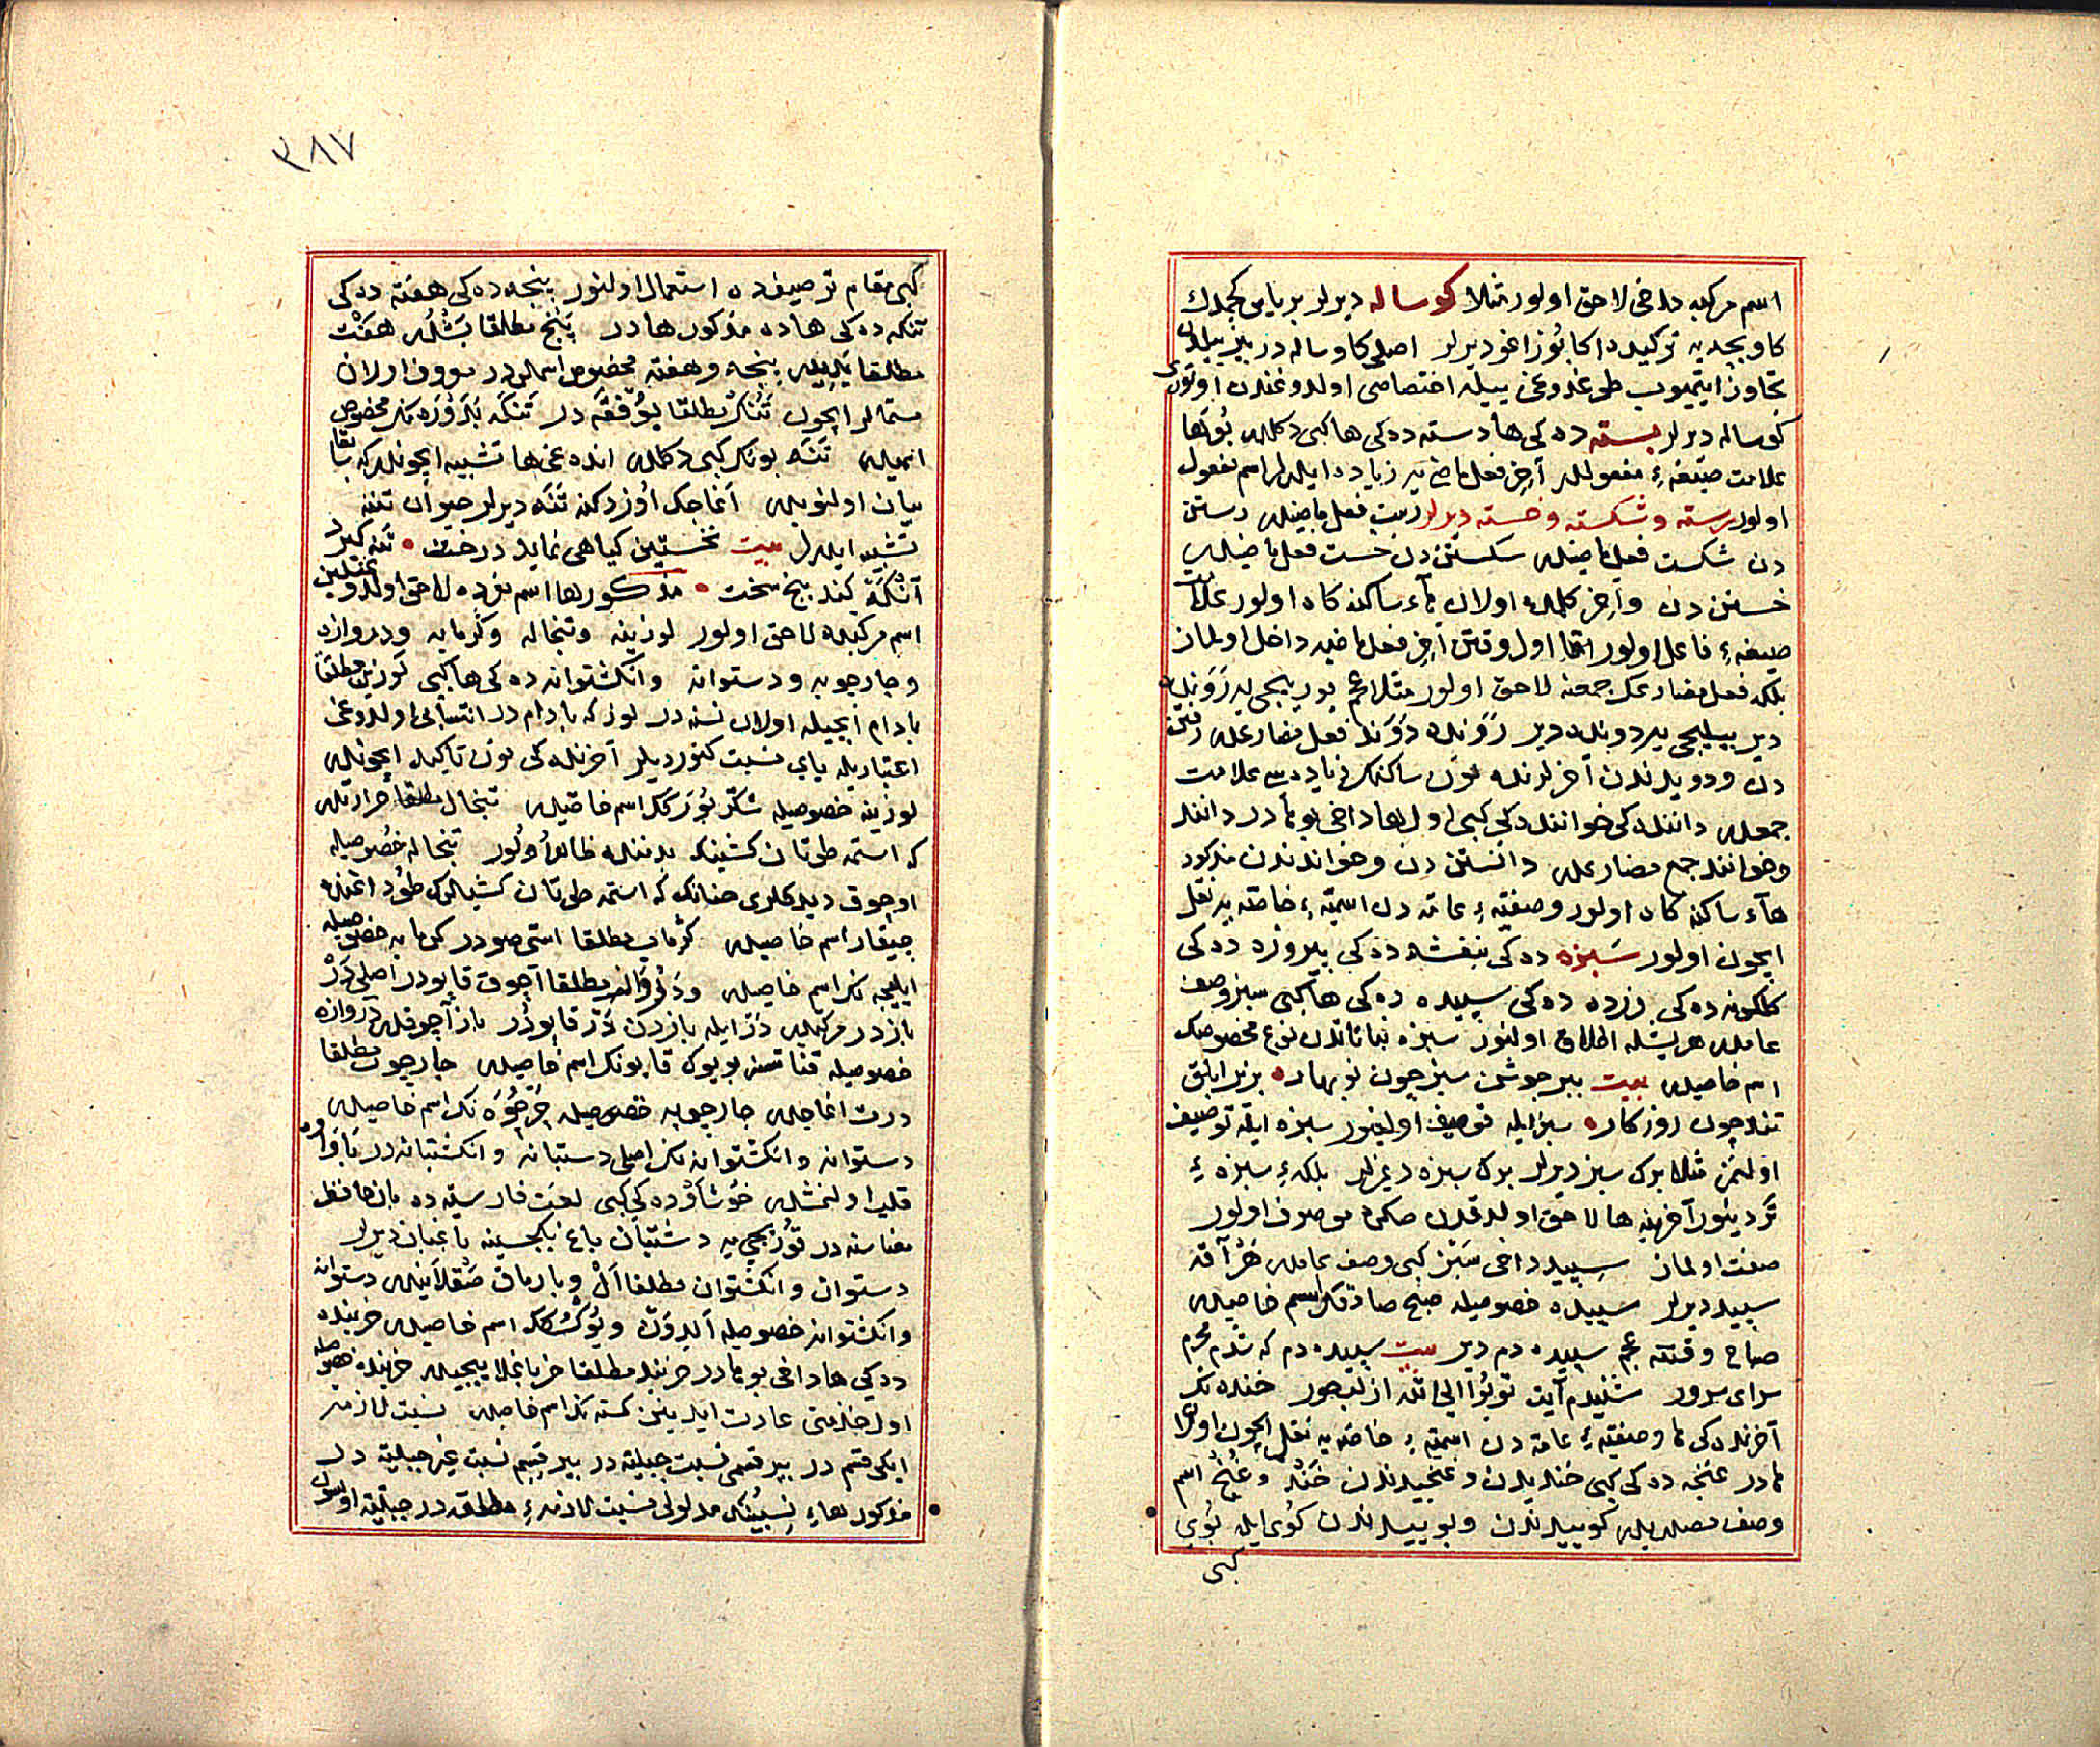 اسم مرکبه داخی لاحق اولور مثلا کوساله دیرلر بر یاس کچمدك
کاو بچه یه ترکیده اکا بوزاغو دیرلر اصلی کاو ساله در بر ییلدن
تجاوز ایتمیوب طوغدوغی ییله اختصاصی اولدوغندن اوتوری
کوساله دیرلر بسته ده کی ها دسته ده کی ها کبی دکلدر بو ها
علامت صیغهٔ مفعولدر آخر فعل ماضی یه زیاده ایدرلر اسم مفعول
اولور رسته و شکسته و خسته دیرلر رست فعل ماضیدر رستن
دن شکست فعل ماضیدر شکستن دن خست فعل ماضیدر
خستن دن و آخر کلمه ده اولان هاء ساکنه کاه اولور علامت
صیغهٔ فاعل اولور اما اول وقتن آخر فعل ماضیه داخل اولماز
بلکه فعل مضارعک جمعنه لاحق اولور مثلا عجم یوریجی یه رونده
دیر ییلیجی یه دونده دیر روند و دوند فعل مضارعدر رفتن
دن و دویدندن آخرلرنده نون ساکنه زیاده سی علامت
جمعدر داننده کی خواننده کی کبی اول ها داخی بویله در دانند
و خوانند جمع مضارعدر دانستن دن و خواندندن مذکور
هاء ساکنه کاه اولور وصفیهٔ عامه دن اسمیهٔ خاصه یه نقل
ایچون اولور سبزه ده کی بنفشه ده کی پیروزه ده کی
کلکونه ده کی زرده ده کی سپیده ده کی ها کبی سبز وصف
عامدر هر یشله اطلاق اولنور سبزه نباتاتدن نوع مخصوصک
اسم خاصیدر بیت ببر جوشن سبز چون نوبهار برنر ابلق
تند چون روزکار سبز ایله توصیف اولنور سبزه ایله توصیف
اولنمز مثلا برك سبز دیرلر برك سبزه دیمزلر بلکه سبزهٔ
تر دینور آخرینه ها لاحق اولدقدن صکره موصوف اولور
صفت اولماز سپید داخی سبز کبی وصف عامدر هر آقه
سپید دیرلر سپیده خصوصیله صبح صادقك اسم خاصیدر
صباح وقتنه عجم سپیده دم دیر بیت سپیده دم که شدم محرم
سرای سرور شنیدم آیت توبوا الی الله از لب حور خنده نك
آخرنده کی ها وصفیهٔ عامه دن اسمیهٔ خاصه یه نقل ایچون اولان
ها در غنجه ده کی کبی خندیدن و غنجیدندن خند و غنج اسم
وصف مصدریدر کوییدندن و بوییدندن کوی ایله بوی
کبی
٢٨٧
کبی مقام توصیفده استعمال اولنور پنجه ده کی هفته ده کی
تنکه ده کی ها ده مذکور ها در پنج مطلقا بشدر هفت
مطلقا یدیدر پنجه و هفته مخصوص اسملردر معروف اولان
مستمالر ایچون تنك مطلقا یوفقه در تنکه بدروزه نك مخصوص
اسمیدر تنه بونك کبی دکلدر انده غی ها تشبیه ایچوندر که بقا
بیان اولنویدر آغاجك اوزدکنه تنه دیرلر حیوان تننه
تشبیه ایدرلر بیت نخستین کیاهی نماید درخت تنه کیرد
آنکه کند بیخ سخت مذکور ها اسم مفرده لاحق اولدوغیلین
اسم مرکبه ده لاحق اولور لوزینه و تبخاله و کرمابه و دروازه
و چارچوبه و دستوانه و انکشتوانه ده کی ها کبی لوزین مطلقا
بادام ایچیله اولان نسنه در لوز که بادام در انتسابی اولدوغی
اعتباریله یای نسبت کتوردیلر آخرنده کی نون تاکید ایچوندر
لوزینه خصوصیله شکر بورکك اسم خاصیدر تبخال مطلقا حرارتدر
که استمه طوتان کشینك بدننده ظاهر اولور تبخاله خصوصیله
اوچوق دیدکلری حنانک که استمه طوتان کشیلرك طوداغنده
چیقار اسم خاصیدر کرماب مطلقا استی صودر کرمابه خصوصیله
ایلیجه نك اسم خاصیدر و درواز مطلقا آچوق قاپودر اصلی در
باز در مرکبدر در ایله بازدن در قاپودر باز آچوقدر دروازه
خصوصیله قناتسز بویوك قاپونك اسم خاصیدر چارچوب مطلقا
درت اغاجدر چارچوبه خصوصیله چرچوه نك اسم خاصیدر
دستوانه و انکشتوانه نك اصلی دستبانه و انکشتبانه در با واوه
قلب اولنمشدر خوشاوده کی کبی لغت فارسیه ده بان حافظ
معناسنه در قوریجی یه دشتبان باغ بکجیسینه باغبان دیرلر
دستوان و انکشتوان مطلقا ال و پارماق صقلایندر دستوانه
و انکشتوانه خصوصیله الدوان و یوکسکك اسم خاصیدر خربنده
ده کی ها داخی بویله در خربند مطلقا خر باغلاییجیدر خربنده خصوصیله
اول خدمتی عادت ایدینن کسنه نك اسم خاصیدر نسبت لازمه
ایکی قسم در بیر قسمی نسبت جبلیه در بیر قسم نسبت غیر جبلیه در
مذکور هاء نسبینك مدلولی نسبت لازمهٔ مطلقه در جبلیه اولسون